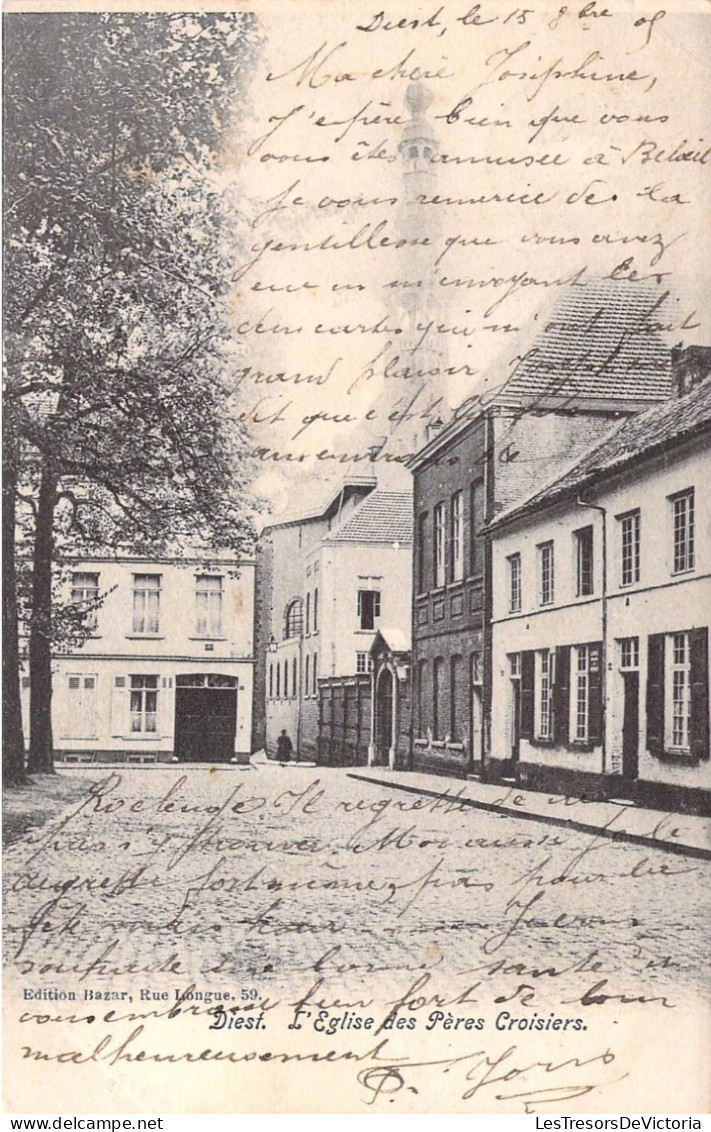 Diest, le 15 8bre 05
Ma chère Joséphine,
J'espère bien que vous
vous êtes amusée à Belœil
Je vous remercie de la
gentillesse que vous avez
eue en m'envoyant les
des cartes qui m'ont fait
grand plaisir. Joséphine
dit que c'est
aux environs de
Rochende Il regrette de ne
pas s'y trouver Moi aussi je le
regrette fort même, pas pour la
fête Je vous
souhaite une bonne santé en
vous embrassant bien fort de loin
malheureusement
Edition Bazar, Rue Longue, 59.
Diest. L'Eglise des Pères Croisiers.
LesTresorsDeVictoria